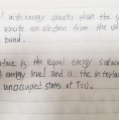 with energy greater than the
excite an electron from the
band.
surface is the equal energy surface
energy level and is the interface
unoccupied states at T=0.